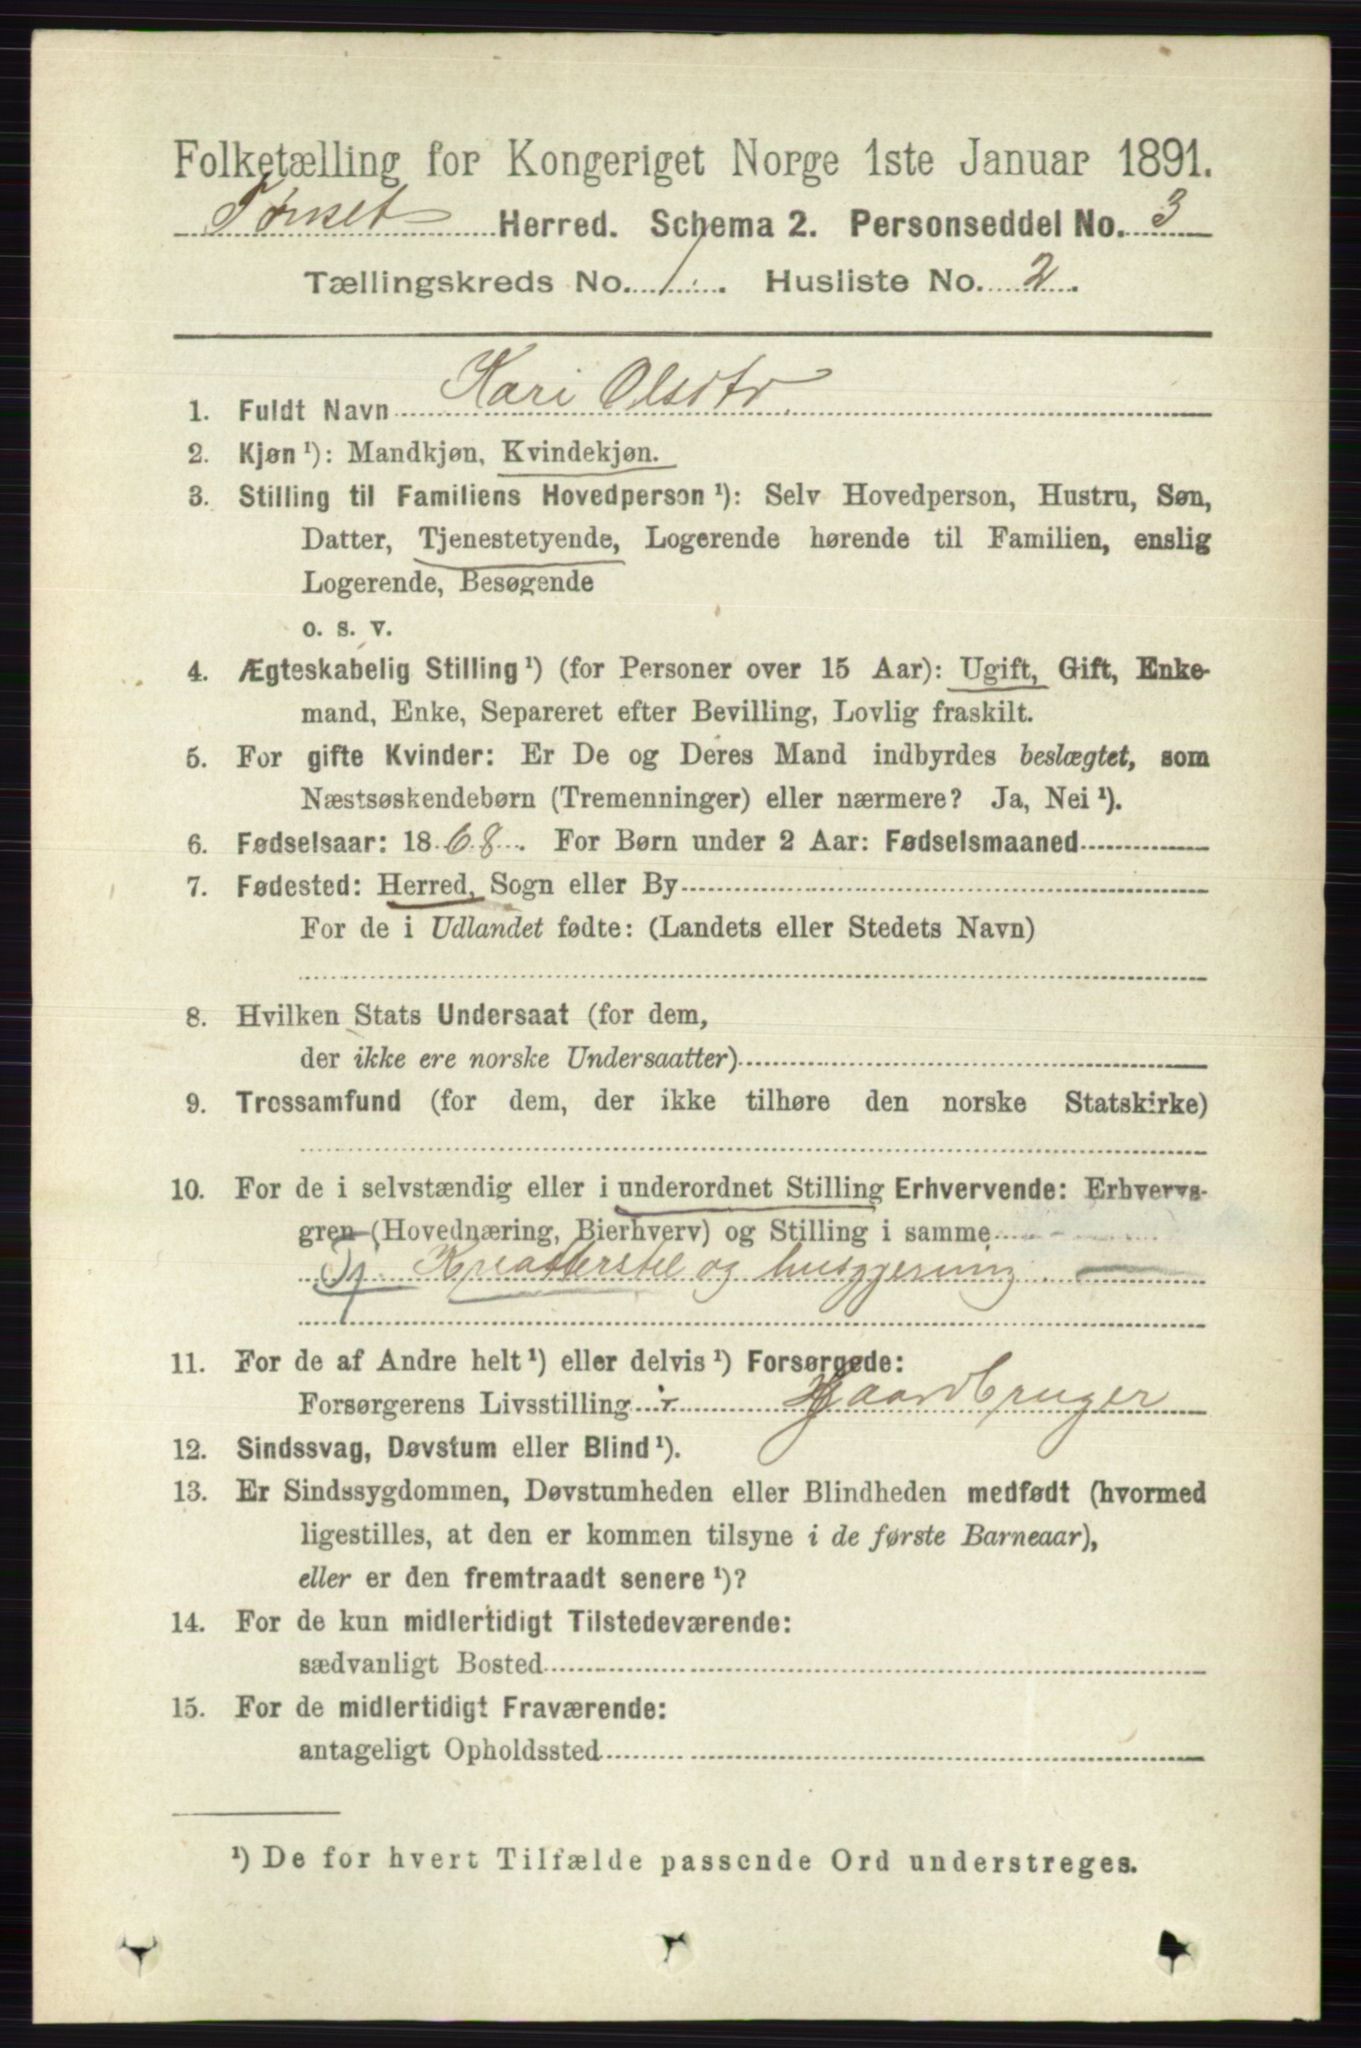 Folketælling for Kongeriget Norge 1ste Januar 1891.
Tønset Herred. Schema 2. Personseddel No. 3
Tællingskreds No. 1. Husliste No. 2.
1. Fuldt Navn Kari Olsdtr.
2. Kjøn ¹): Mandkjøn, Kvindekjøn.
3. Stilling til Familiens Hovedperson ¹): Selv Hovedperson, Hustru, Søn,
Datter, Tjenestetyende, Logerende hørende til Familien, enslig
Logerende, Besøgende
o. s. v.
4. Ægteskabelig Stilling ¹) (for Personer over 15 Aar): Ugift, Gift, Enke-
mand, Enke, Separeret efter Bevilling, Lovlig fraskilt.
5. For gifte Kvinder: Er De og Deres Mand indbyrdes beslægtet, som
Næstsøskendebørn (Tremenninger) eller nærmere? Ja, Nei ¹).
6. Fødselsaar: 1868. For Børn under 2 Aar: Fødselsmaaned
7. Fødested: Herred, Sogn eller By
For de i Udlandet fødte: (Landets eller Stedets Navn)
8. Hvilken Stats Undersaat (for dem,
der ikke ere norske Undersaatter)
9. Trossamfund (for dem, der ikke tilhøre den norske Statskirke)
10. For de i selvstændig eller i underordnet Stilling Erhvervende: Erhvervs-
gren (Hovednæring, Bierhverv) og Stilling i samme
Kreaturstel og husgjerning
11. For de af Andre helt ¹) eller delvis ¹) Forsørgede:
Forsørgerens Livsstilling Gaardbruger
12. Sindssvag, Døvstum eller Blind ¹).
13. Er Sindssygdommen, Døvstumheden eller Blindheden medfødt (hvormed
ligestilles, at den er kommen tilsyne i de første Barneaar),
eller er den fremtraadt senere ¹)?
14. For de kun midlertidigt Tilstedeværende:
sædvanligt Bosted
15. For de midlertidigt Fraværende:
antageligt Opholdssted
¹) De for hvert Tilfælde passende Ord understreges.